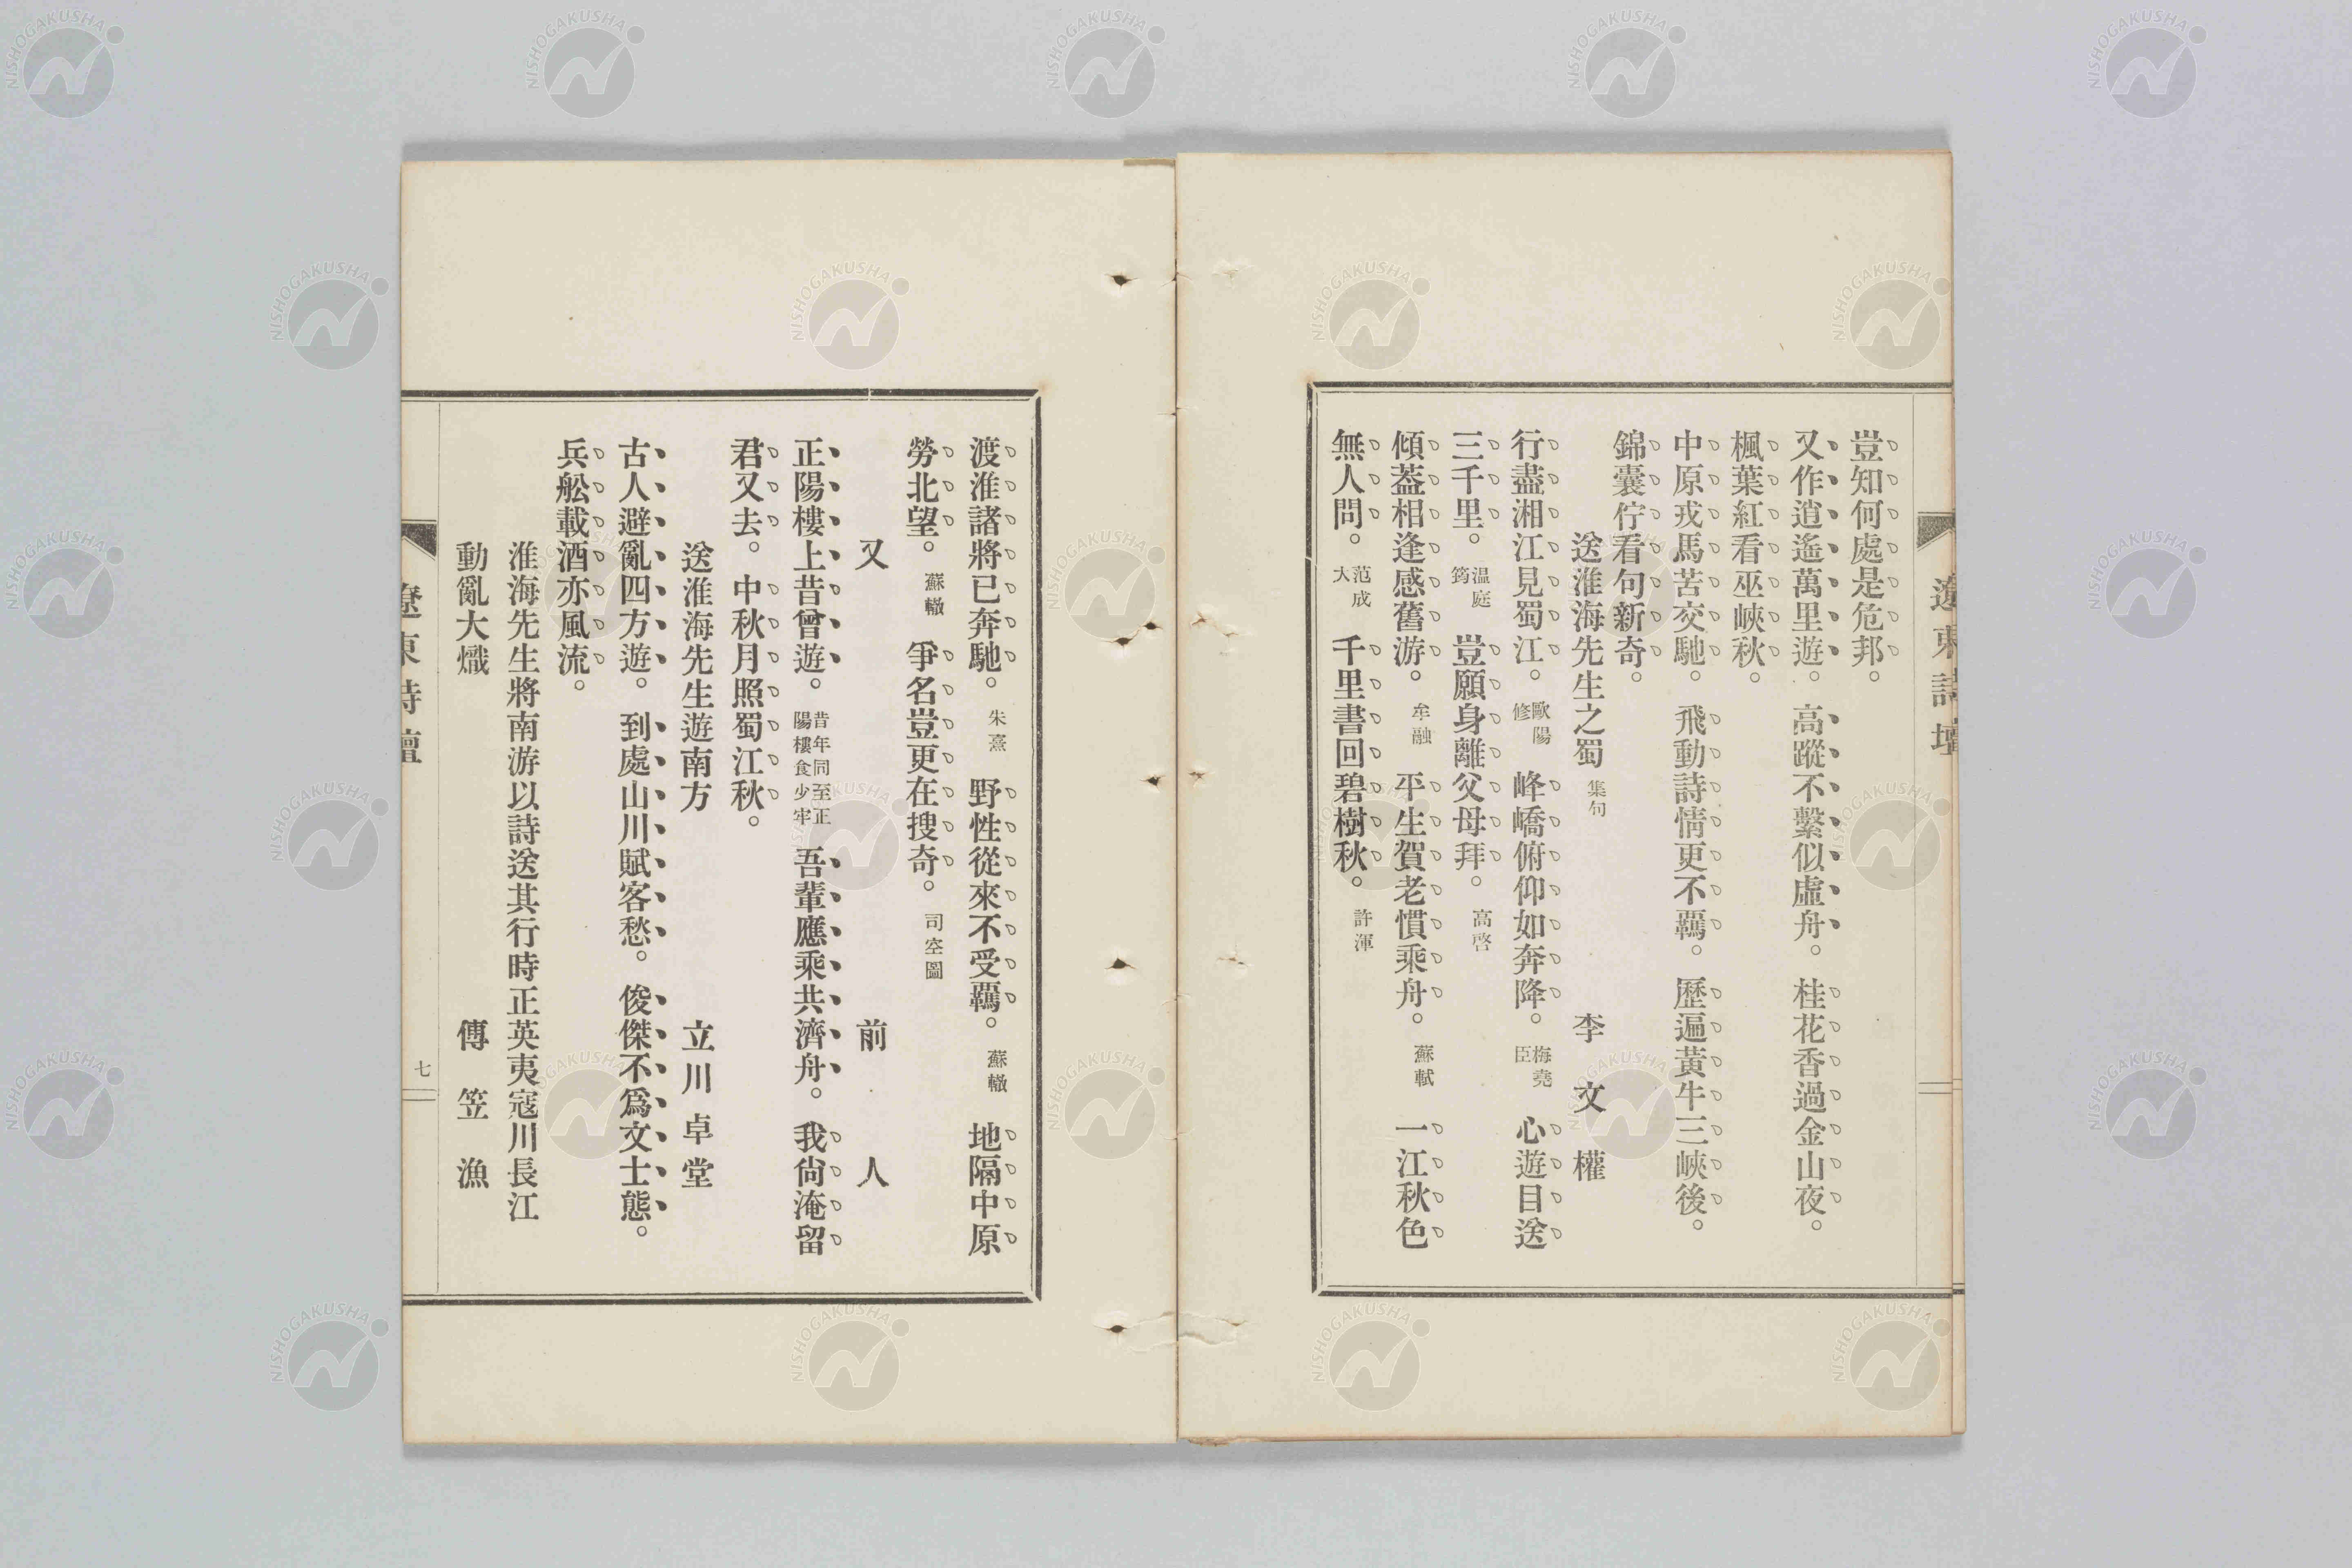 豈知何處是危邦。
又作逍遙萬里遊。高蹤不繫似虛舟。桂花香過金山夜。
楓葉紅看巫峽秋。
中原戎馬苦交馳。飛動詩情更不羈。歷遍黃牛三峽後。
錦囊佇看句新奇。
送淮海先生之蜀 集句 李文權
行盡湘江見蜀江。歐陽修 峰嶠俯仰如奔降。梅堯臣 心遊目送
三千里。温庭筠 豈願身離父母拜。高啓
傾葢相逢感舊游。牟融 平生賀老慣乘舟。蘇軾 一江秋色
無人問。范成大 千里書回碧樹秋。許渾
遼東詩壇
渡淮諸將已奔馳。朱熹 野性從來不受羈。蘇轍 地隔中原
勞北望。蘇轍 爭名豈更在搜奇。司空圖
又 前人
正陽樓上昔曾遊。昔年同至正陽樓食少牢 吾輩應乘共濟舟。我尙淹留
君又去。中秋月照蜀江秋。
送淮海先生遊南方 立川卓堂
古人避亂四方遊。到處山川賦客愁。俊傑不爲文士態。
兵舩載酒亦風流。
淮海先生將南游以詩送其行時正英夷寇川長江
動亂大熾 傅笠漁
遼東詩壇 七
NISHOGAKUSHA